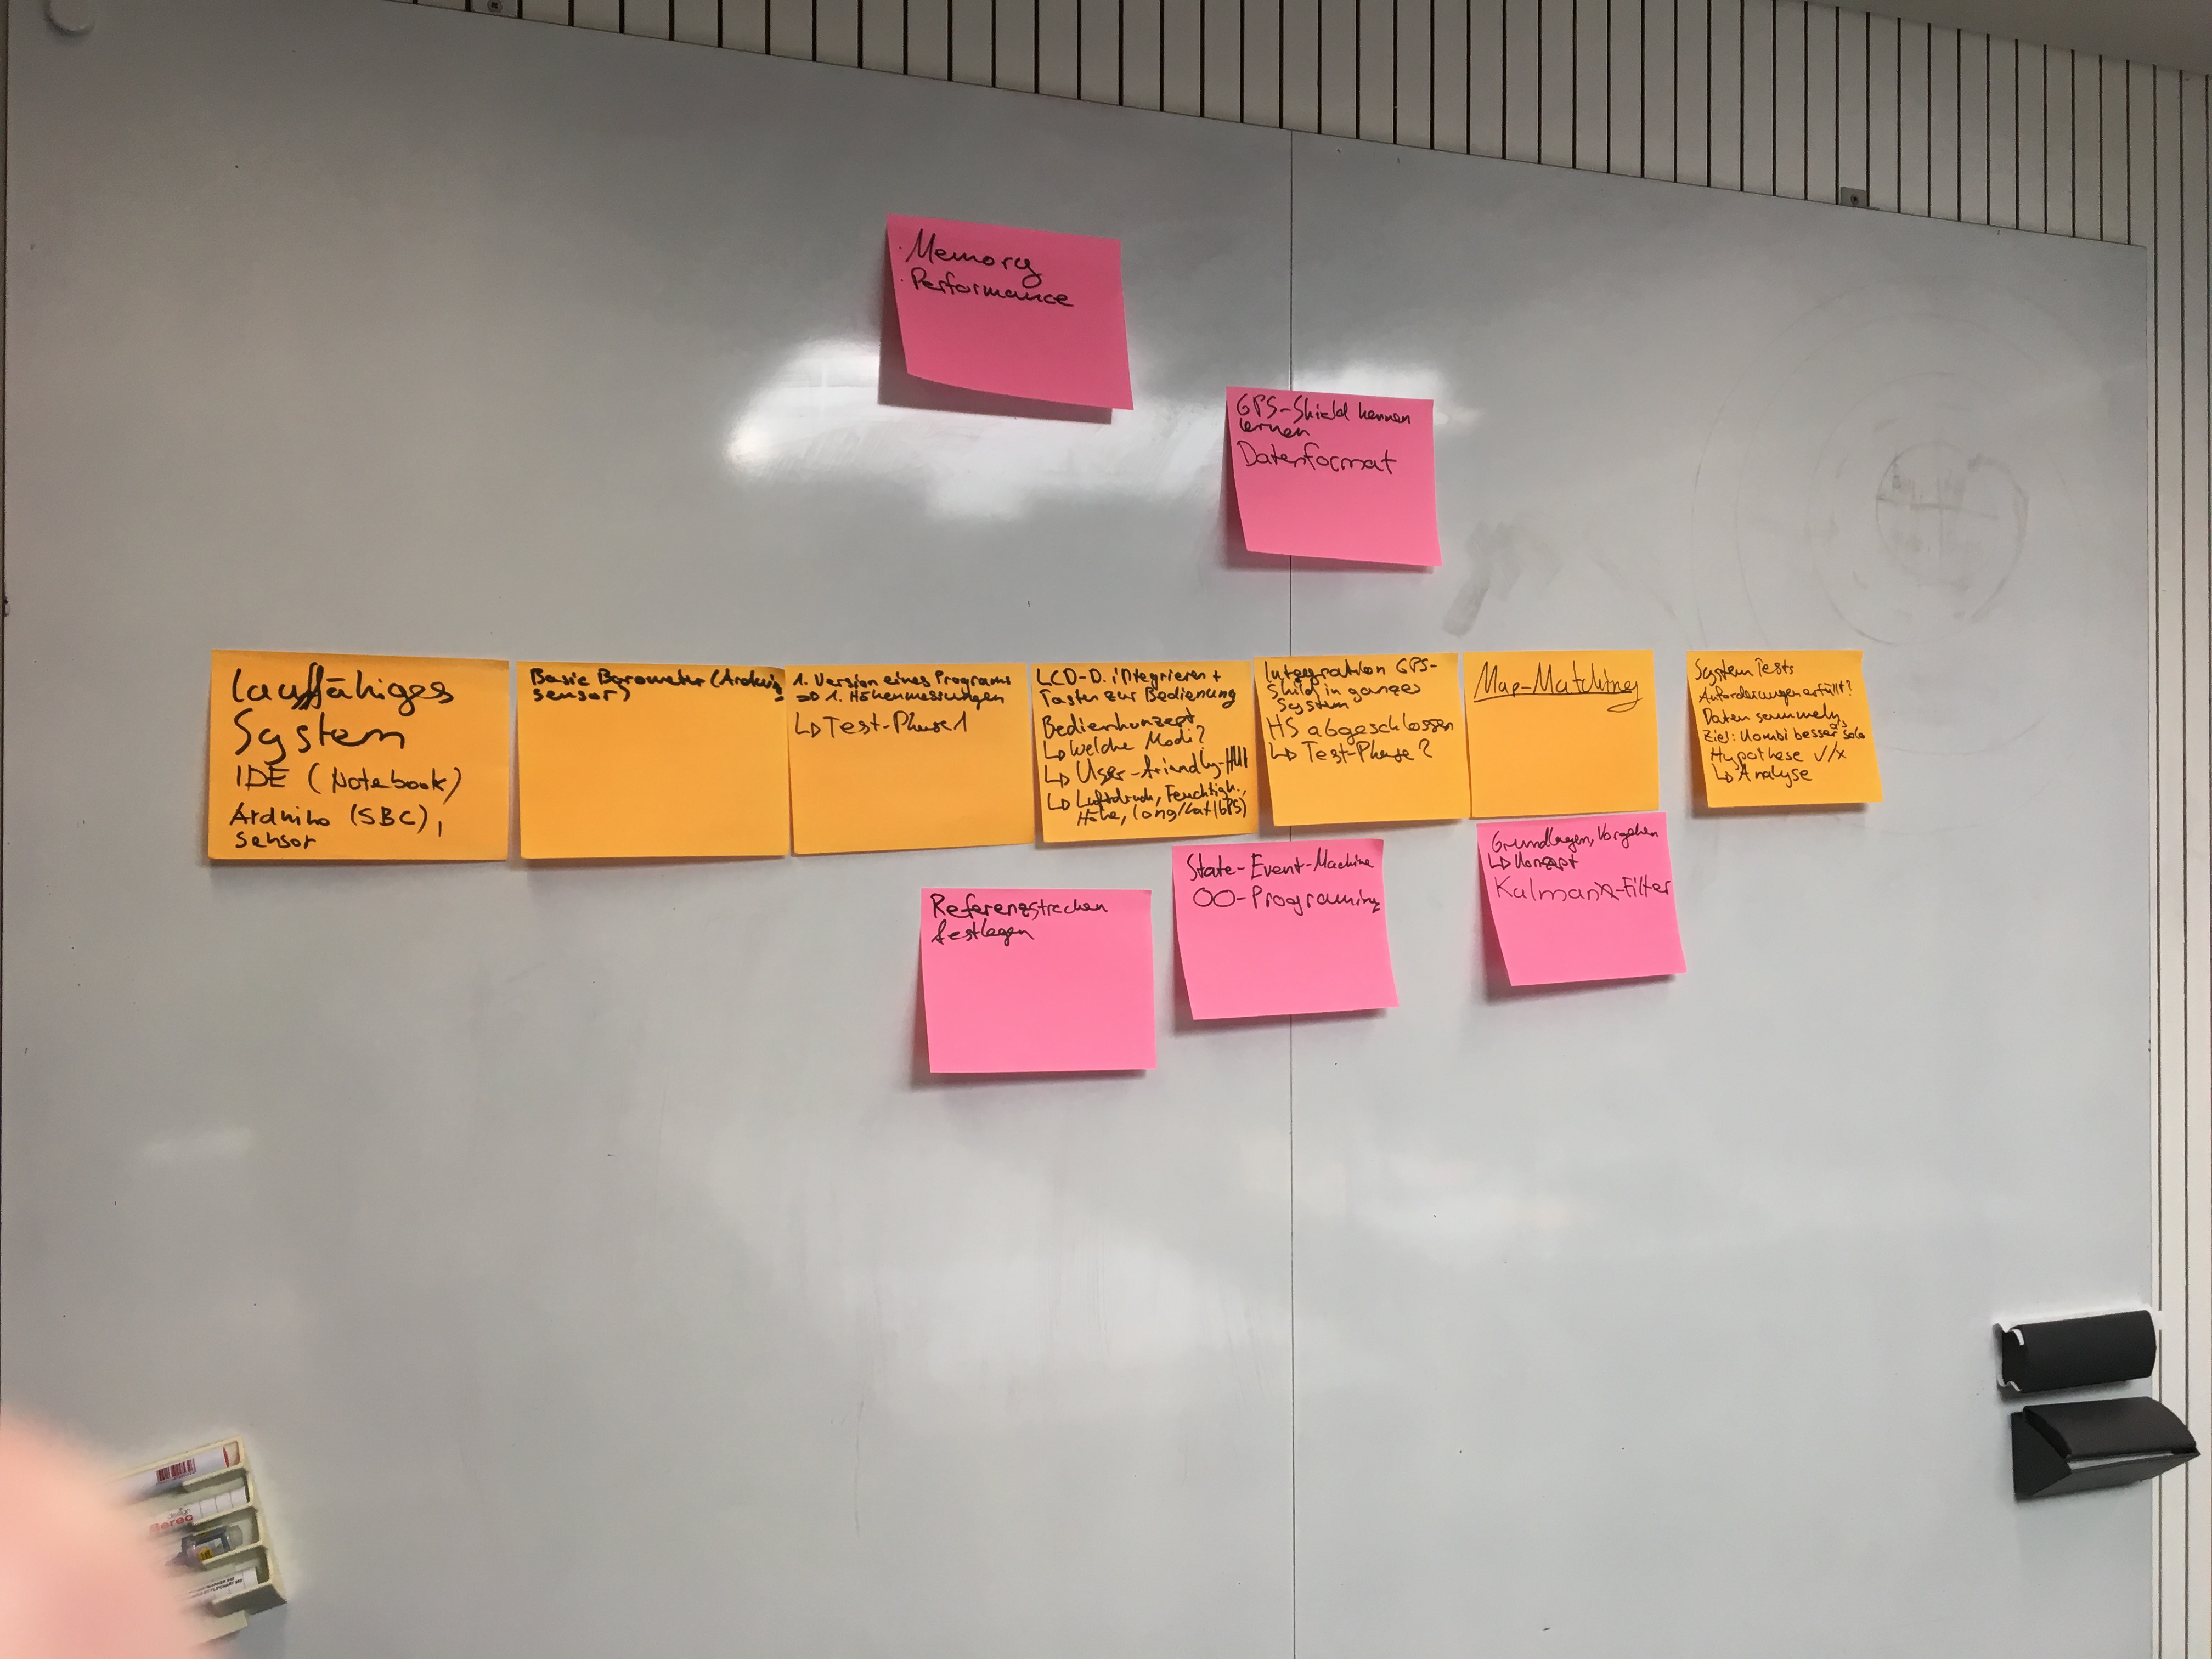 · Memory
· Performance
GPS-Shield kennen
lernen
Datenformat
lauffähiges
System
IDE (Notebook)
Arduino (SBC),
Sensor
Basic Barometer (Arduino,
sensor)
1. Version eines Programs
=> 1. Höhenmessungen
↳ Test-Phase 1
LCD-D. integrieren +
Tasten zur Bedienung
Bedienkonzept
↳ Welche Modi?
↳ User-friendly-HMI
↳ Luftdruck, Feuchtigk.,
Höhe, long/lat (GPS)
Integration GPS-
Shild in ganzes
System
HS abgeschlossen
↳ Test-Phase 2
Map-Matching
System Tests
Anforderungen erfüllt?
Daten sammeln,
Ziel: Kombi besser als solo
Hypothese ✓/x
↳ Analyse
Referenzstrecken
festlegen
State-Event-Machine
OO-Programing
Grundlagen, Vorgehen
↳ Konzept
Kalman-Filter
Berec